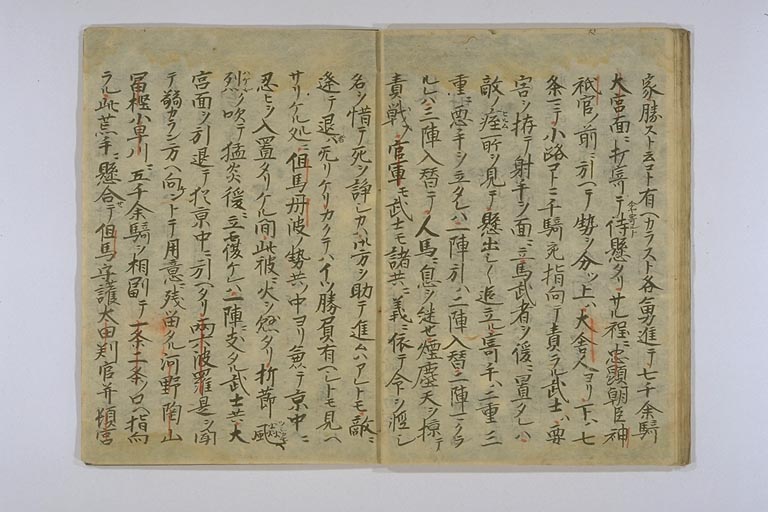 家勝スト云コト有ヘカラスト各勇進テ七千余騎
大宮面ニ打寄テ待懸タリサル程ニ忠顕朝臣神
祇官ノ前ニ引ヘテ勢ヲ分ツ上ハ大舎人ヨリ下ハ七
条ニ小路コトニ千騎充指向テ責ラル武士ハ要
害ヲ拵テ射手ヲ面ニ立馬武者ヲ後ニ置タレハ
敵ノ疼所ヲ見テ懸出々々追立ル寄手ハ二重三
重ニ荒手ヲ立タレハ一陣引ハ二陣入替二陣
ルレハ三陣入替テ人馬ニ息ヲ継セ煙塵天ヲ掠テ
責戦フ官軍モ武士モ諸共ニ義ニ依テ命ヲ軽シ
名ヲ惜テ死ヲ諍シカハ御方ヲ助テ進ムハアレトモ敵ニ
逢テ退ハ无リケリカクテハイツ勝負有ヘシトモ見ヘ
サリケル処ニ但馬丹波ノ勢共ノ中ヨリ兼テ京中ニ
忍ヒヲ入置タリケル間此彼ニ火ヲ懸タリ折節颷
烈ク吹テ猛炎後ニ立覆ケレハ一陣ニ支タル武士共大
宮面ヲ引退テ於京中ニ引ヘタリ六波羅是ヲ聞
テ弱カラン方ヘ向ントテ用意ニ残留タル河野陶山
冨樫小早川ニ五千余騎ヲ相副テ一条二条ノ口ヘ指向
ラル此荒手ニ懸合テ但馬守護太田判官并頓宮